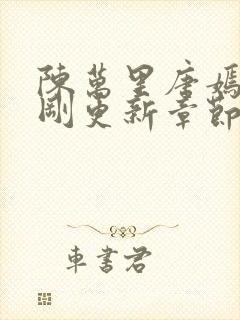 陳萬里唐嫣
剛更新章節
車書君